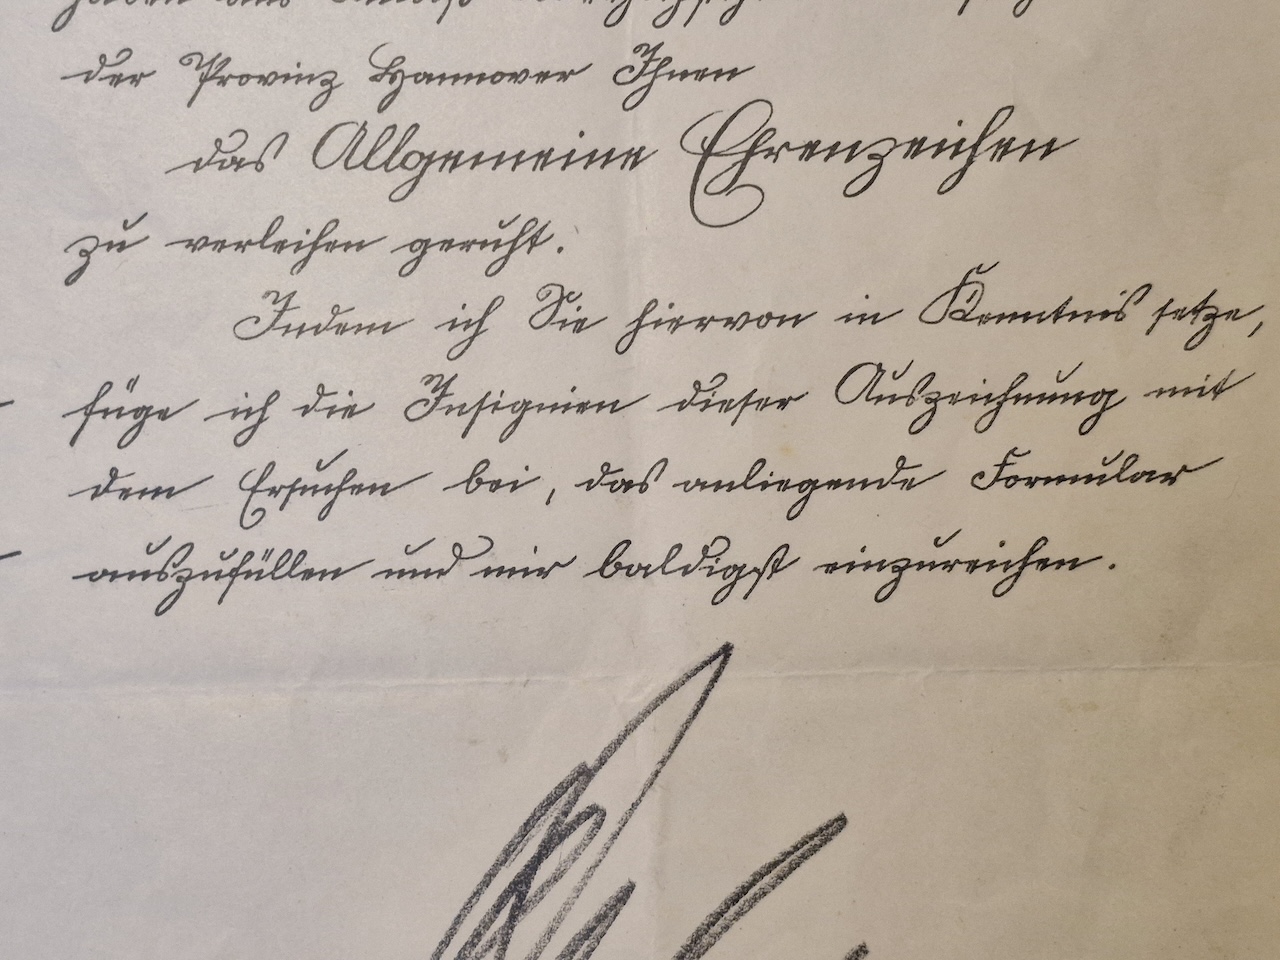 haben aus Anlaß
der Provinz Hannover Ihnen
das Allgemeine Ehrenzeichen
zu verleihen geruht.
Indem ich Sie hiervon in Kenntnis setze,
füge ich die Insignien dieser Auszeichnung mit
dem Ersuchen bei, das anliegende Formular
auszufüllen und mir baldigst einzureichen.